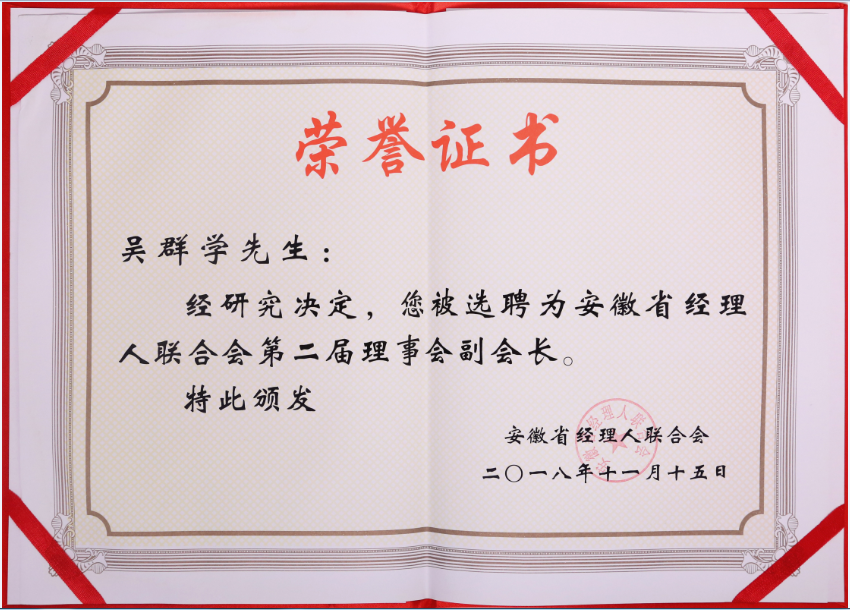 荣誉证书
吴群学先生：
经研究决定，您被选聘为安徽省经理
人联合会第二届理事会副会长。
特此颁发
安徽省经理人联合会
二〇一八年十一月十五日
安徽省经理人联合会